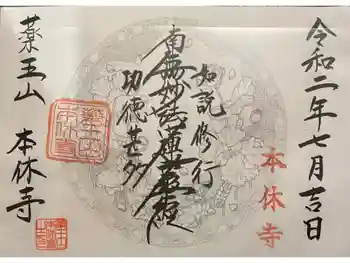 令和二年七月吉日
本休寺
如説修行
南無妙法蓮華経
功徳甚多
薬王山
本休寺